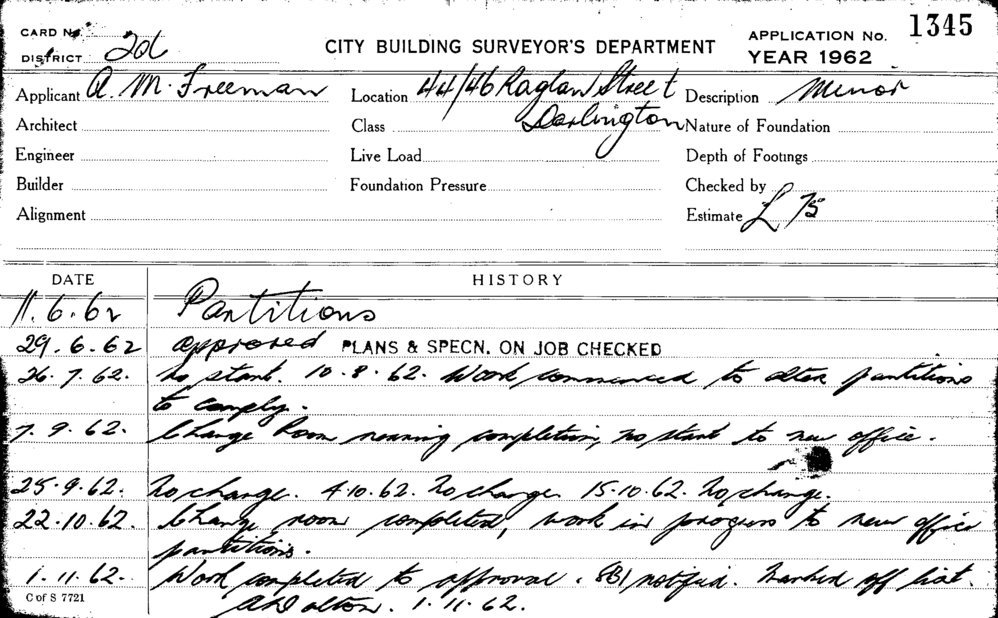 CARD No.
DISTRICT 2d
CITY BUILDING SURVEYOR'S DEPARTMENT
APPLICATION No. 1345
YEAR 1962
Applicant A. M. Freeman
Location 44/46 Raglan Street
Darlington
Description Minor
Architect
Class
Nature of Foundation
Engineer
Live Load
Depth of Footings
Builder
Foundation Pressure
Checked by
Alignment
Estimate £ 75
DATE HISTORY
11.6.62 Partitions
29.6.62 approved PLANS & SPECN. ON JOB CHECKED
26.7.62. No start. 10.8.62. Work commenced to alter partitions
to comply.
7.9.62. Change Room nearing completion, no start to new office.
25.9.62. No change. 4.10.62. No change. 15.10.62. No change.
22.10.62. Change room completed, work in progress to new office
partitions.
1.11.62. Work completed to approval. notified. Marked off list.
1.11.62.
C of S 7721